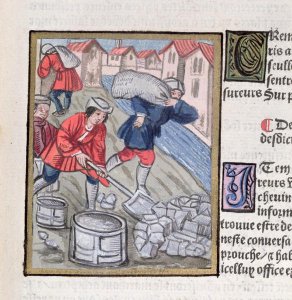 CRem
ris a
scull
sentre
sureurs Sur p
¶ De
desdic
ITem
reurs L
chevin
inform
trouve estre de
neste conversa
prouche / a hab
icelluy office e